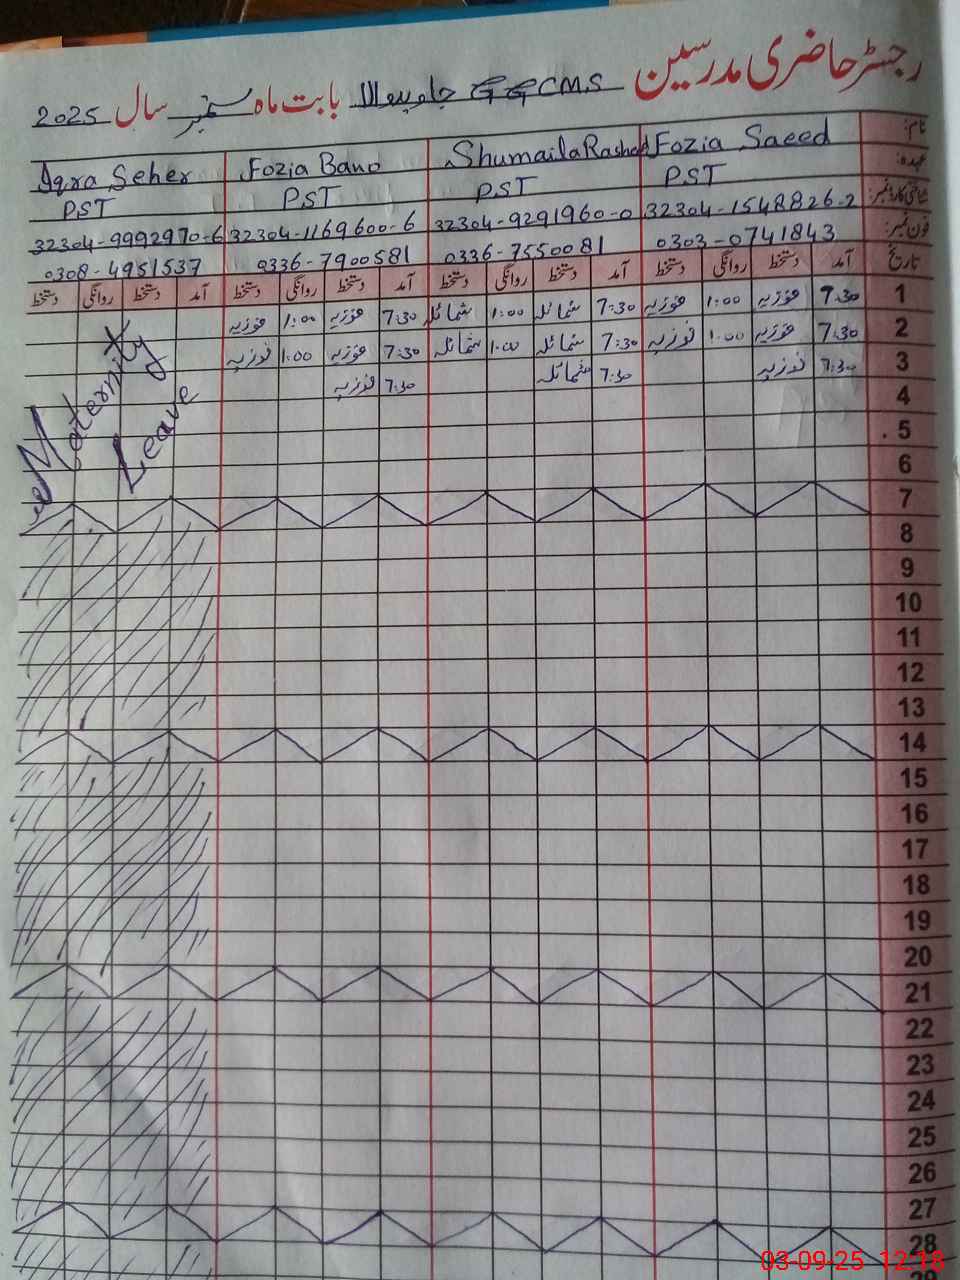 رجسٹر حاضری مدرسین GGCMS جلوپیروالا بابت ماہ ستمبر سال 2025
نام:
Fozia Saeed Shumaila Rashed Fozia Bano Iqra Seher
عہدہ:
PST PST PST PST
شناختی کارڈ نمبر:
32304-1548826-2 32304-9291960-0 32304-1169600-6 32304-9992970-6
فون نمبر:
0303-0741843 0336-7550081 0336-7900581 0308-4951537
تاریخ آمد دستخط روانگی دستخط آمد دستخط روانگی دستخط آمد دستخط روانگی دستخط آمد دستخط روانگی دستخط
1 7:30 فوزیہ 1:00 فوزیہ 7:30 شمائلہ 1:00 شمائلہ 7:30 فوزیہ 1:00 فوزیہ
2 7:30 فوزیہ 1:00 فوزیہ 7:30 شمائلہ 1:00 شمائلہ 7:30 فوزیہ 1:00 فوزیہ
3 7:30 فوزیہ 7:30 شمائلہ 7:30 فوزیہ
Maternity
Leave
4
5
6
7
8
9
10
11
12
13
14
15
16
17
18
19
20
21
22
23
24
25
26
27
28
29
03-09-25 12:18